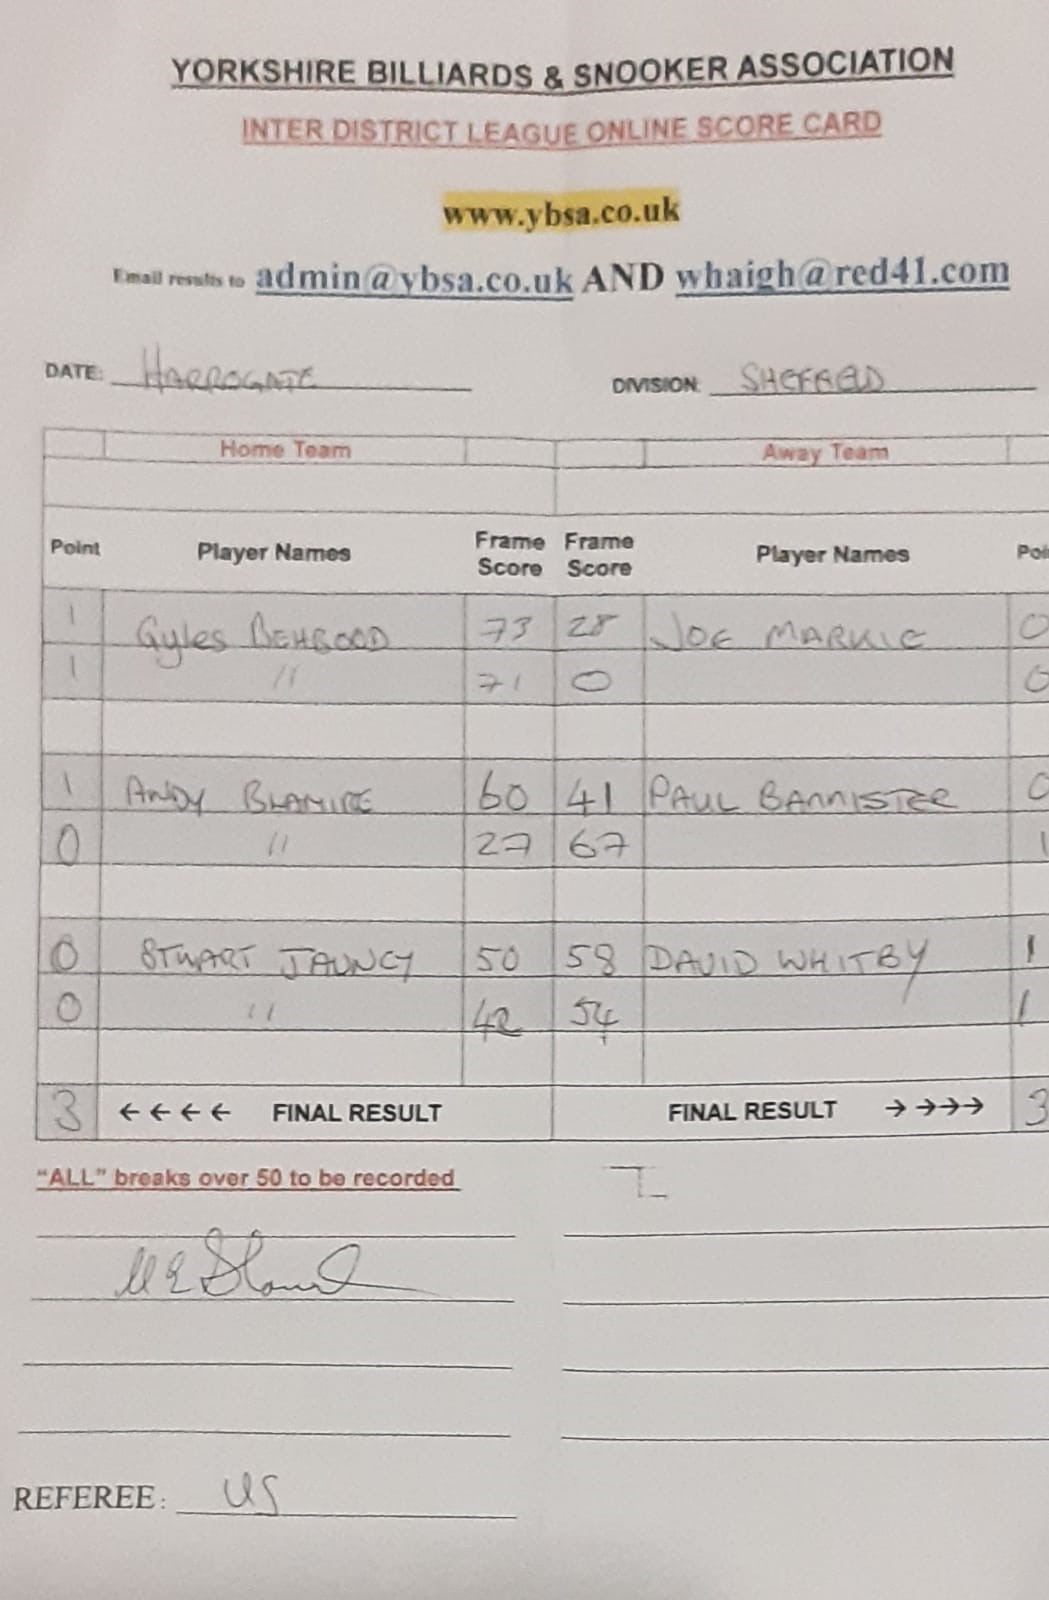 YORKSHIRE BILLIARDS & SNOOKER ASSOCIATION
INTER DISTRICT LEAGUE ONLINE SCORE CARD
www.ybsa.co.uk
Email results to admin@ybsa.co.uk AND whaigh@red41.com
DATE: HARROGATE DIVISION: SHEFFIELD
Home Team Away Team
Point Player Names Frame Score Frame Score Player Names Poi
1 Gyles BEHGOOD 73 28 JOE MARKIE 0
1 " 71 0 0
1 ANDY BLAMIRE 60 41 PAUL BANNISTER 0
0 " 27 67 1
0 STUART JAUNCY 50 58 DAVID WHITBY 1
0 " 42 54 1
3 ←←←← FINAL RESULT FINAL RESULT →→→→ 3
"ALL" breaks over 50 to be recorded
REFEREE: US